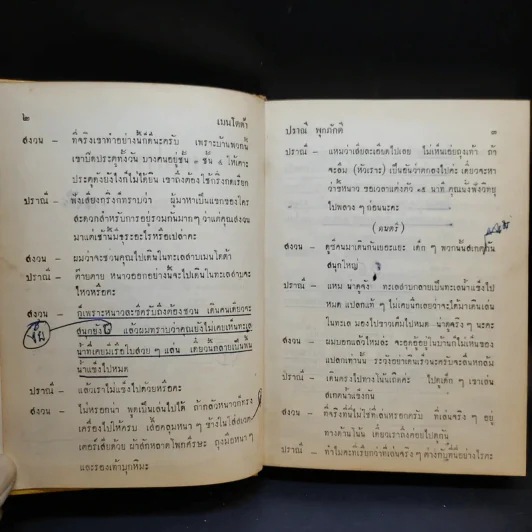 ๒ เมนโดต้า
สงวน – ที่จริงเขาทำอย่างนี้ก็ดีนะครับ เพราะบ้านพวกนี้
เขาปิดประตูทั้งวัน บางคนอยู่ชั้น ๓ ชั้น ๔ ให้เคาะ
ประตูดังยังไงก็ไม่ได้ยิน เขาถึงต้องใช้กริ่งกดเรียก
ปราณี – ฟังเสียงกริ่งก็ทราบว่า ผู้มาหาเป็นแขกของใคร
สะดวกสำหรับการอยู่รวมกันมากๆ ว่าแต่คุณสงวน
มาแต่เช้านี้มีธุระอะไรหรือเปล่าคะ
สงวน – ผมว่าจะชวนคุณไปเดินในทะเลสาบเมนโดต้า
ปราณี – ต๊ายตาย หนาวออกอย่างนี้จะไปเดินในทะเลสาบคะ
ไหวหรือคะ
สงวน – ก็เพราะหนาวละซีครับถึงต้องชวน เดินคนเดียวจะ
สนุกยังไง แล้วผมทราบว่าคุณยังไม่เคยเห็นทะเล
น้ำที่เคยมีเรือใบสวย ๆ แล่น เดี๋ยวนี้กลายเป็นพื้น
น้ำแข็งไปหมด
ปราณี – แล้วเราไม่แข็งไปด้วยหรือคะ
สงวน – ไม่หรอกน่า พูดเป็นเล่นไปได้ ถ้ากลัวหนาวก็ทรง
เครื่องไปให้ครบ เสื้อคลุมหนา ๆ ข้างในใส่สเวต-
เตอร์เสียด้วย ผ้าสักหลาดโพกศีรษะ ถุงมือหนา ๆ
และรองเท้าบุกหิมะ
ปราณี พุกภักดี ๓
ปราณี – แหมว่าเสียละเอียดไปเลย ไม่เห็นเอ่ยถุงเท้า ถ้า
จะลืม (หัวเราะ) เป็นอันว่าตกลงไปค่ะ เดี๋ยวจะหา
ว่าขี้หนาว ขอเวลาแต่งตัว ๑๕ นาที คุณนั่งฟังวิทยุ
ไปพลาง ๆ ก่อนนะคะ
(ดนตรี)
สงวน – ดูซีคนมาเดินกันเยอะแยะ เด็ก ๆ พวกนั้นสเกตกัน
สนุกใหญ่
ปราณี – แหม น่าดูจัง ทะเลสาบกลายเป็นทะเลน้ำแข็งไป
หมด แปลกแท้ ๆ ไม่เคยนึกเลยว่าจะได้มาเดินเล่น
ในทะเล มองไปขาวเต็มไปหมด น่าดูจริง ๆ นะคะ
สงวน – ผมบอกแล้วไหมล่ะ จะอุดอู้อยู่ในบ้านก็ไม่เห็นของ
แปลกเท่านั้น ระวังอย่าเดินเร็วนะครับจะลื่นหกล้ม
ปราณี – เดินตรงไปทางโน้นเถิดค่ะ ไปดูเด็ก ๆ เขาเล่น
สเกตน้ำแข็งกัน
สงวน – ที่จริงที่นี่ไม่ใช่ที่เล่นหรอกครับ ที่เล่นจริง ๆ อยู่
ทางด้านโน้น เดี๋ยวเราถึงค่อยไปดูกัน
ปราณี – ทำไมคะที่เรียกว่าที่เล่นจริง ๆ ต่างกับที่นี่อย่างไรคะ